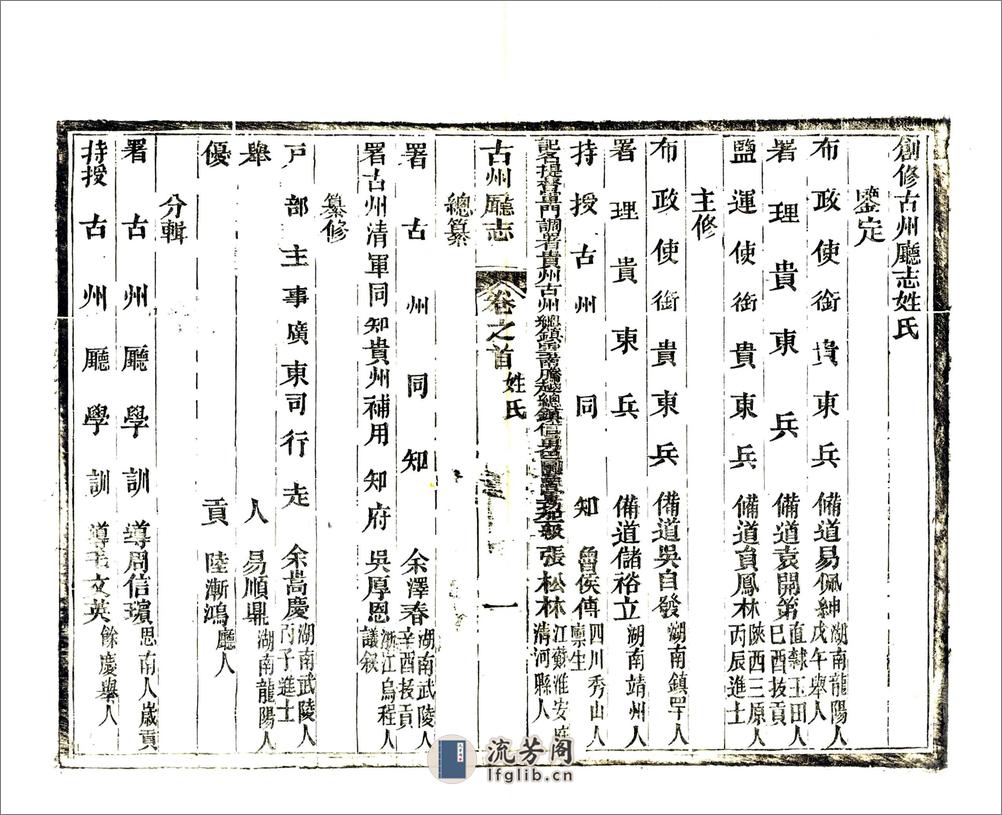 創修古州廳志姓氏
鑒定
布政使銜貴東兵備道易佩紳湖南龍陽人戊午舉人
署理貴東兵備道袁開第直隸玉田人己酉拔貢
鹽運使銜貴東兵備道負鳳林陝西三原人丙辰進士
主修
布政使銜貴東兵備道吳自發湖南鎮筸人
署理貴東兵備道儲裕立湖南靖州人
持授古州同知曾侯傳四川秀山人廩生
記名提督軍門調署貴州古州總鎮雲南騰越總鎮信勇巴圖魯張松林江蘇淮安府清河縣人
古州廳志
卷之首
姓氏
一
總纂
署古州同知余澤春湖南武陵人辛酉拔貢
署古州清軍同知貴州補用知府吳厚恩浙江烏程人議敘
纂修
戶部主事廣東司行走余嵩慶湖南武陵人丙子進士
舉人易順鼎湖南龍陽人
優貢陸漸鴻廳人
分輯
署古州廳學訓導周信璸思南人歲貢
持授古州廳學訓導文英餘慶舉人
流芳阁
lfglib.cn